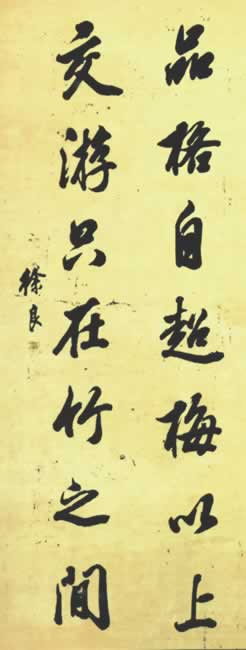 品格自超梅以上
交游只在竹之間
徐良